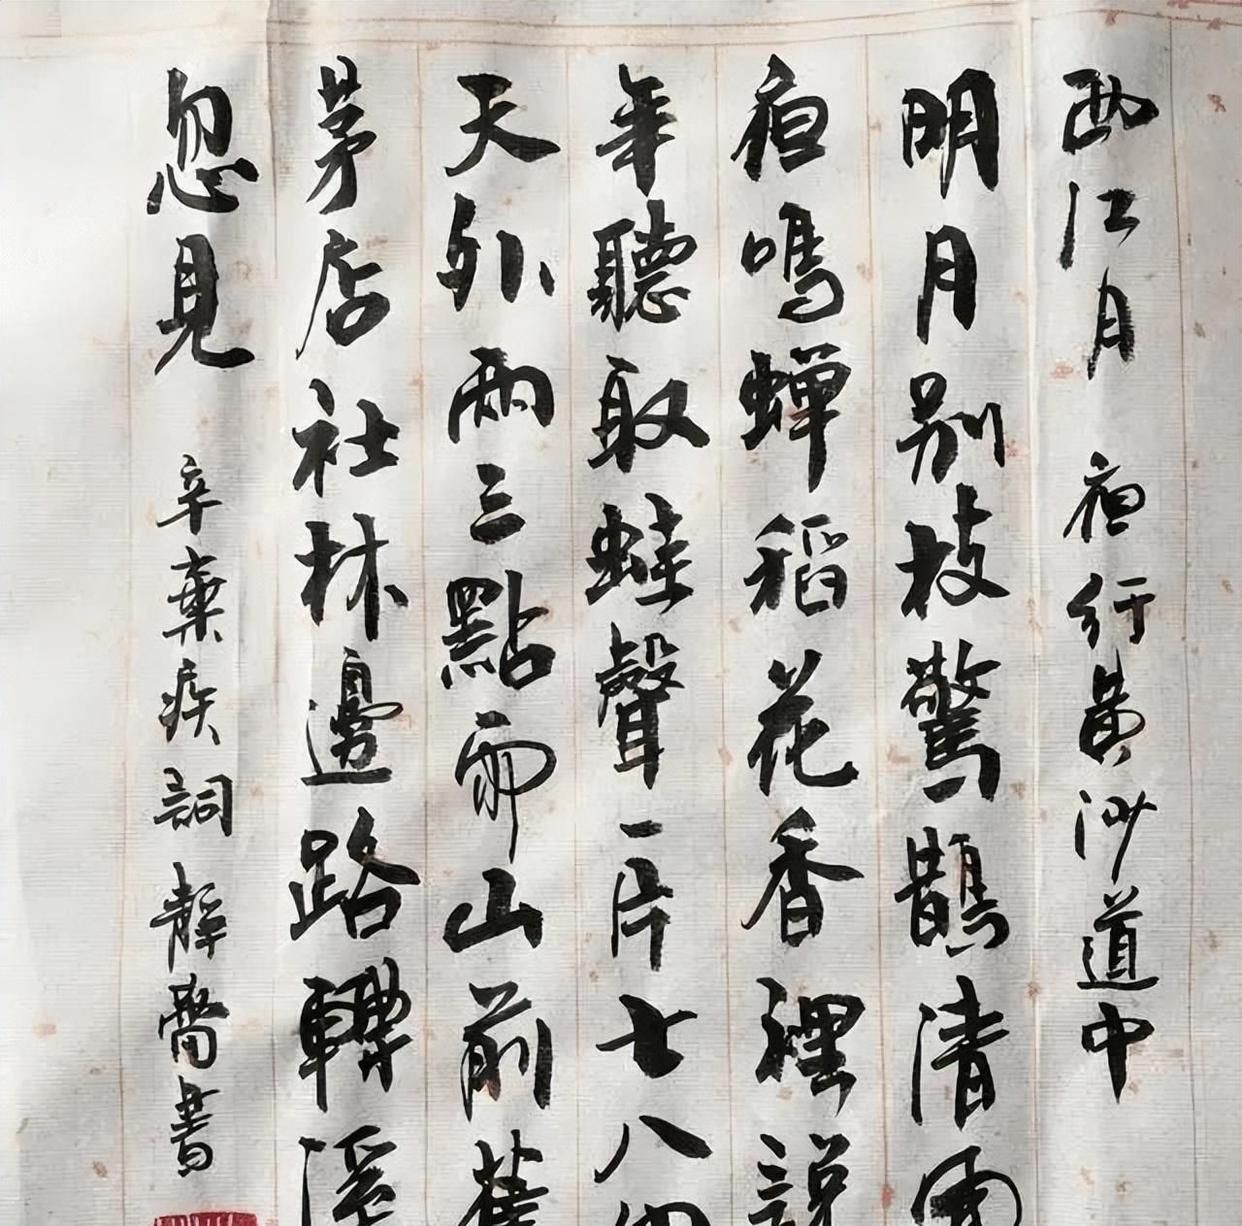 西江月 夜行黄沙道中
明月别枝驚鵲清風
夜鳴蟬稻花香裡說
年聽取蛙聲一片七八
天外兩三點雨山前舊
茅店社林邊路轉溪
忽見 辛棄疾詞 靜齋書